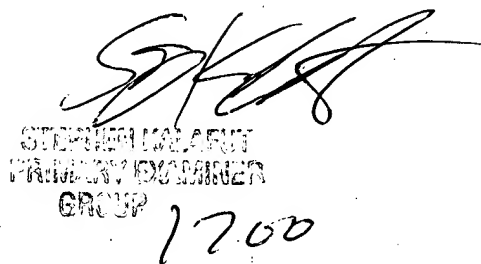 STEPHEN KALAFUT
PRIMARY EXAMINER
GROUP
1700